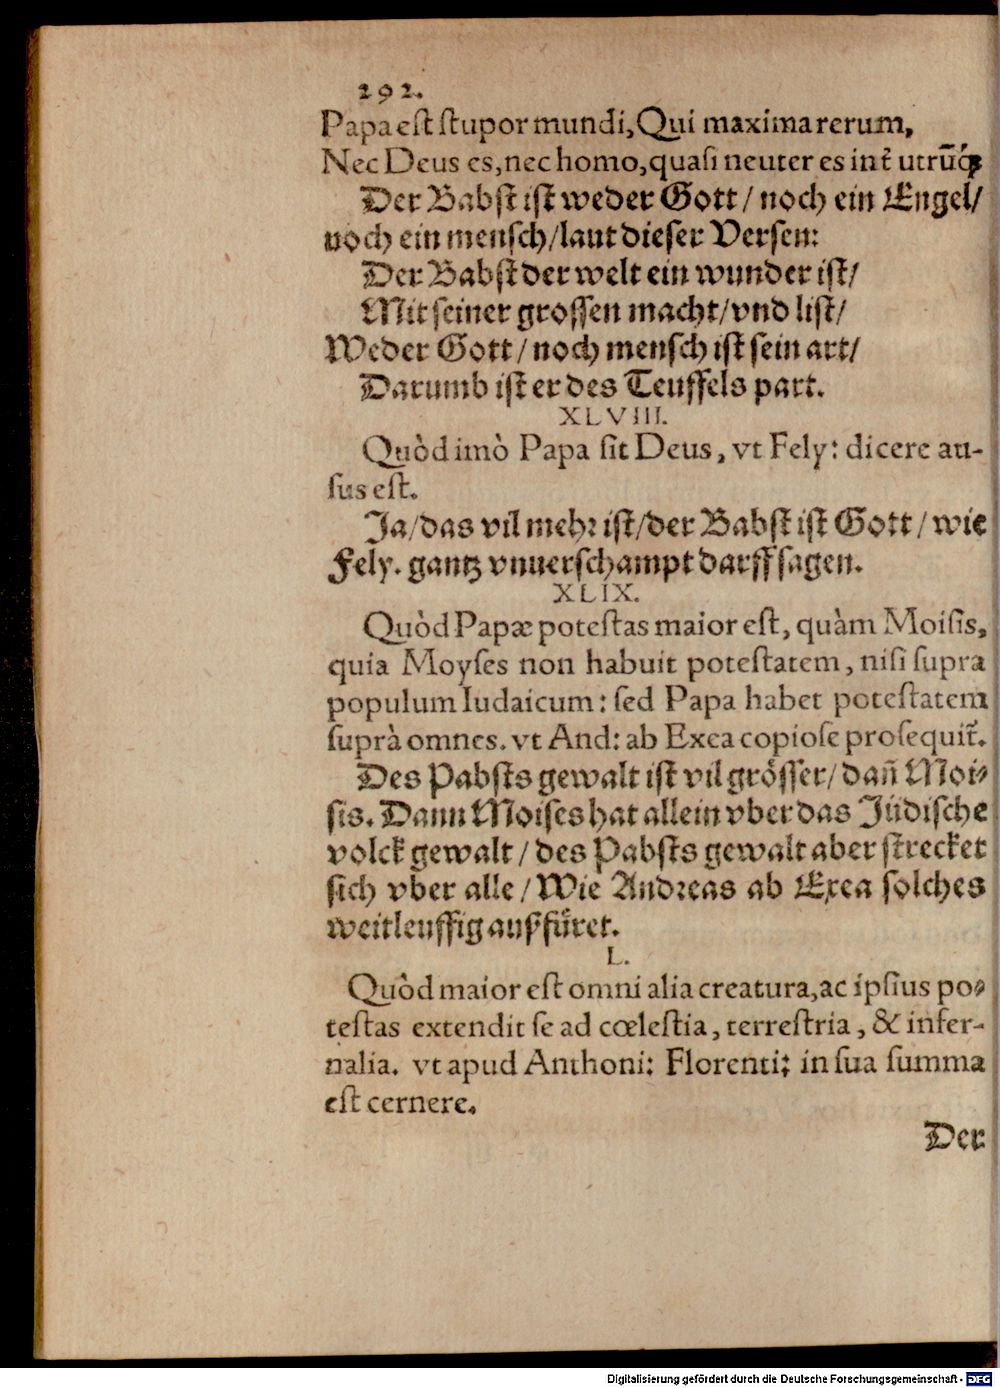 292.
Papa est stupor mundi, Qui maxima rerum,
Nec Deus es, nec homo, quasi neuter es int̃ utrũq̃ꝫ
Der Babst ist weder Gott / noch ein Engel /
noch ein mensch / laut dieser Versen:
Der Babst der welt ein wunder ist /
Mit seiner grossen macht / vnd list /
Weder Gott / noch mensch ist sein art /
Darumb ist er des Teuffels part.
XLVIII.
Quòd imò Papa sit Deus, vt Fely: dicere au-
sus est.
Ja / das vil mehr ist / der Babst ist Gott / wie
Fely. gantz vnuerschampt darff sagen.
XLIX.
Quòd Papæ potestas maior est, quàm Moisis,
quia Moyses non habuit potestatem, nisi supra
populum Iudaicum: sed Papa habet potestatem
suprà omnes. vt And: ab Exea copiose prosequit̃.
Des Pabsts gewalt ist vil grösser / dañ Moi-
sis. Dann Moises hat allein vber das Jüdische
volck gewalt / des Pabsts gewalt aber strecket
sich vber alle / Wie Andreas ab Exea solches
weitleuffig außfüret.
L.
Quòd maior est omni alia creatura, ac ipsius po-
testas extendit se ad cœlestia, terrestria, & infer-
nalia. vt apud Anthoni: Florenti: in sua summa
est cernere.
Der
Digitalisierung gefördert durch die Deutsche Forschungsgemeinschaft - DFG